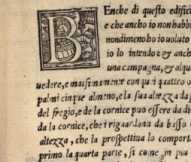 BEnche di questo edifici
e che anche io non habbi
nondimeno ho io voluto
io lo intendo: & anch
una campagna, & alqua
uedere, e massimamente con quattro
palmi cinque almeno, e la sua altezza da
del fregio, e de la cornice può essere da di
da la cornice, che riguardano da basso
altezza, che la prospettiua lo comport
primo la quarta parte, si come in